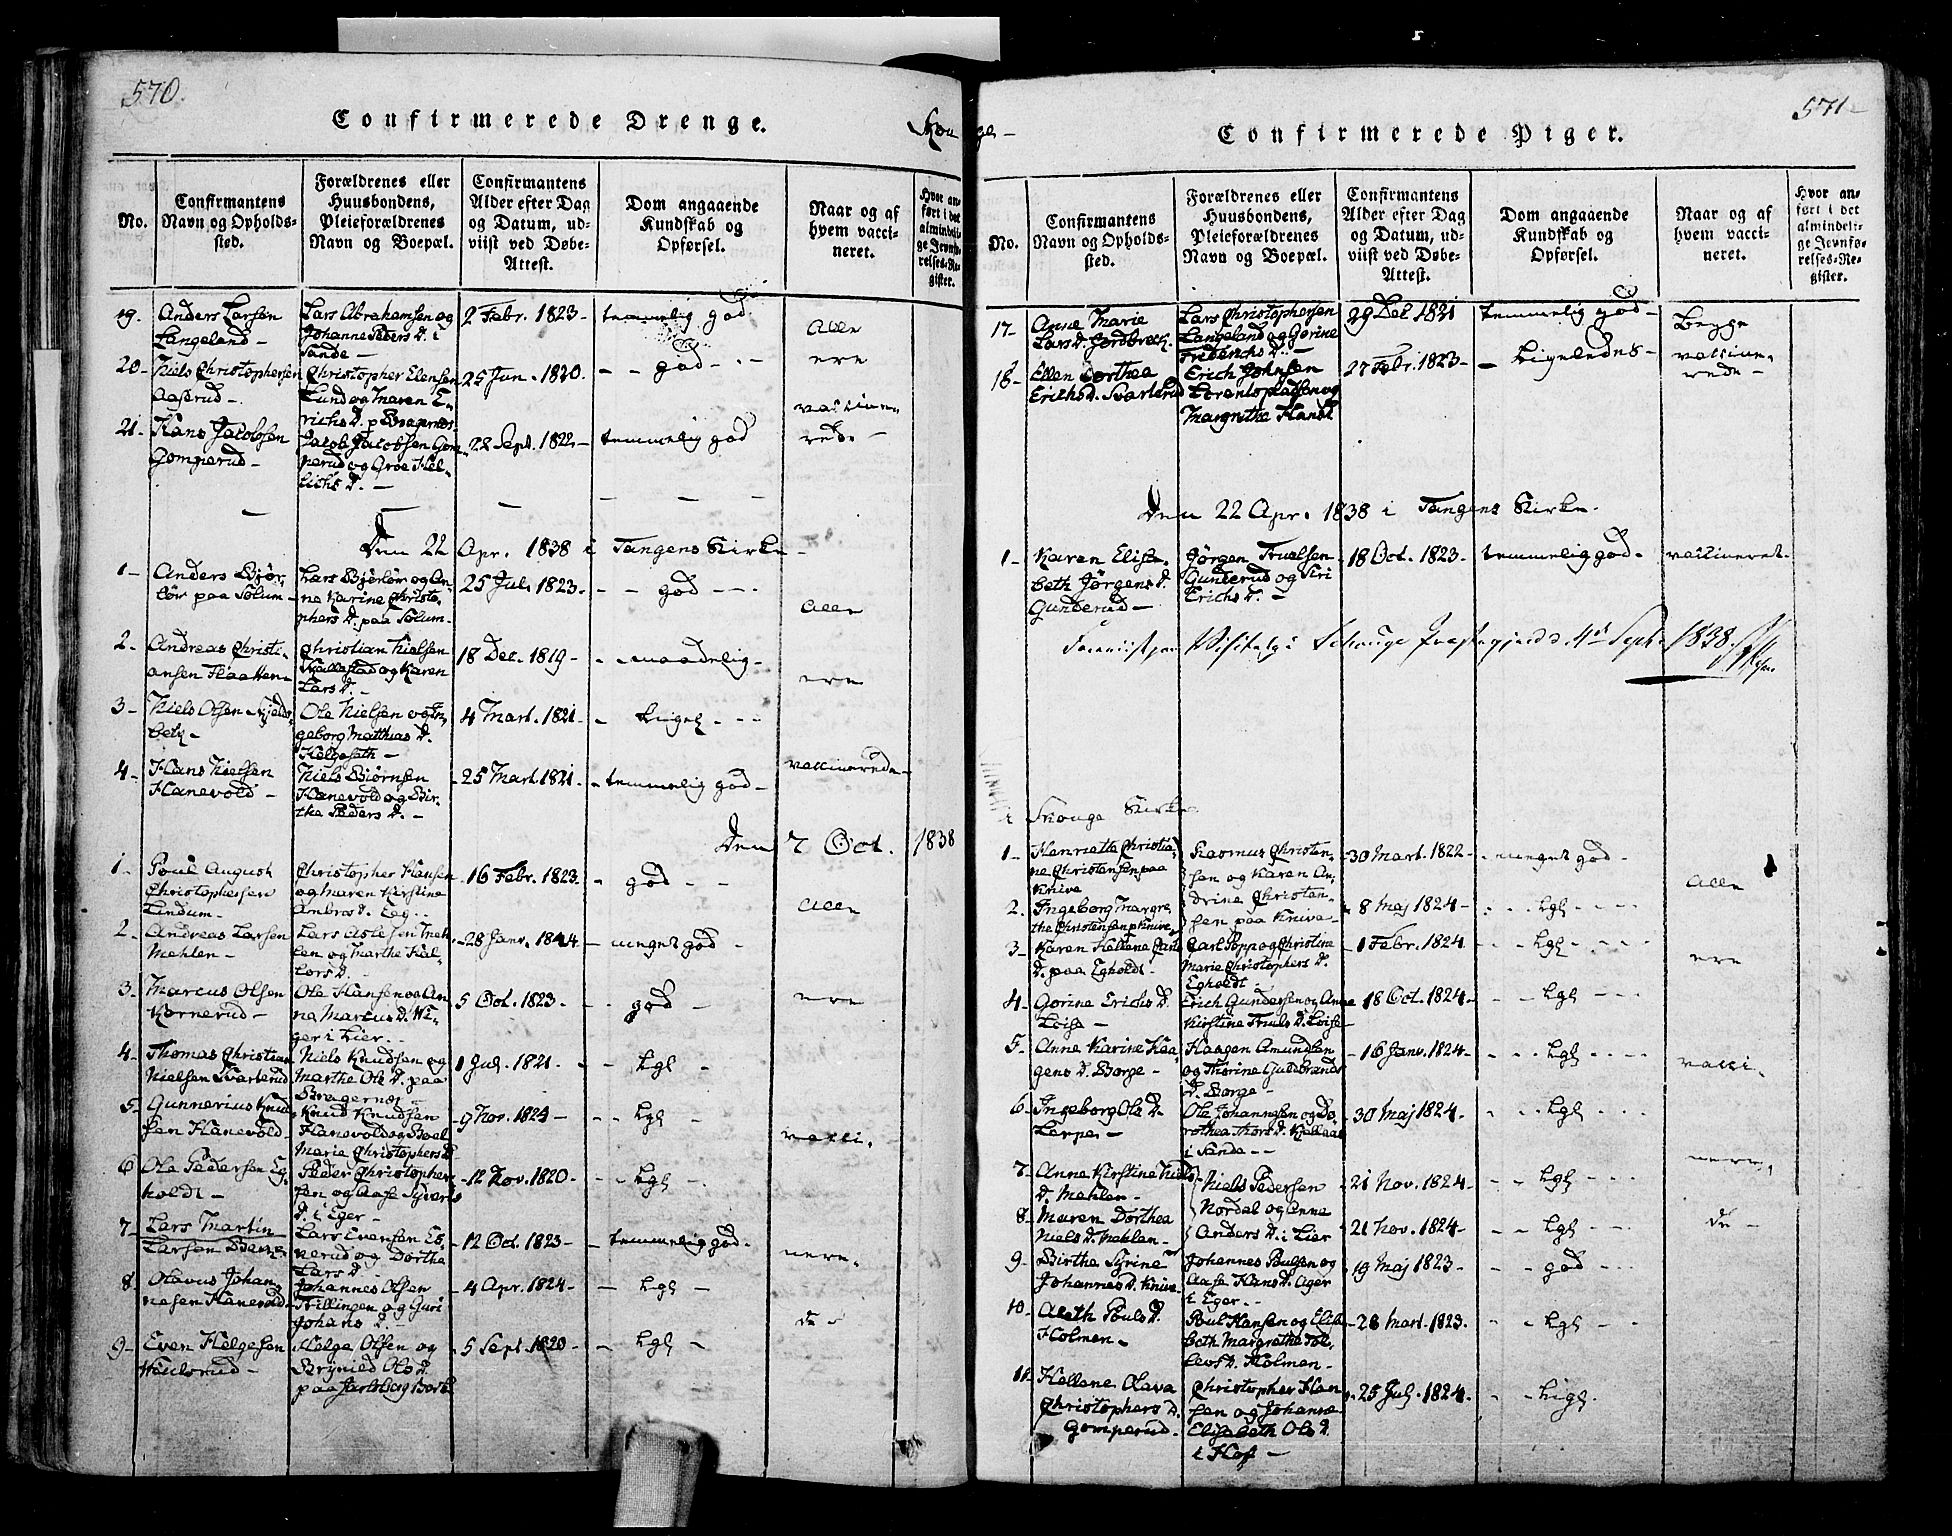 570.
Confirmerede Drenge.
No.
Confirmantens Navn og Opholds-sted.
Forældrenes eller Huusbondens, Pleieforældrenes Navn og Boepæl.
Confirmantens Alder efter Dag og Datum, ud-viist ved Døbe-Attest.
Dom angaaende Kundskab og Opførsel.
Naar og af hvem vacci-neret.
Hvor an-ført i det almindeli-ge Jevnfø-relses-Re-gister.
19. Anders Larsen Langeland - Lars Abrahamsen og Johanne Peders D. i Sande - 2 Febr. 1823 - temmelig god -
20 - Niels Christophersen Aasrud - Christopher Elensen Lund og Maren Erichs D. p Bragernes - 25 Jun. 1820. - - god - . -
21. Hans Jacobsen Gomperud - Jacob Jacobsen Gomperud og Groe Hel- D. - 28 Sept. 1822 - temmelig god
Alle ere vaccinerede -
Den 22 Apr. 1838 i Tangens Kirke -
1 - Anders Bjør- paa Solum - Lars og Anne Karine Christophers D. paa Solum - 25 Jul. 1823. - - god - - -
2. Andreas Christiansen Flaatten - Christian Nielsen og Karen Lars D. - 18 Dec. 1819 - - maadelig -
3 - Niels Olsen - Ole Nielsen og Ingeborg Matthias D. - 4 Mart. 1821 - - Ligel - - -
4 - Hans Nielsen Hanevold - Niels Biørnsen Hanevold og Birthe Peders D. - 25 Mart. 1821 - temmelig god -
Alle ere vaccinerede -
Den 7 Oct. 1838
1. Poul August Christophersen Lindum - Christopher Hansen og Maren Kirstine Ambros D. Eeg. - 16 Febr. 1823. - god - -
2. Andreas Larsen Mehlen - Lars og Marthe D. - 28 Janv. 1824 - meget god -
3. Marcus Olsen Kornerud - Ole Hansen og Anne Marcus D. i Lier. - 5 Oct. 1823 - - - god -
4. Thomas Christian Nielsen Svarterud - Niels Knudsen og Marthe Ols D. paa Bragernæs - 1 Jul. 1821. - - Lgl -
5 - Gunnerius Knudsen Hanevold - Knud Knudsen Hanevold og Boel Marie Christophers D - 9 Nov. 1824 - - - Lgl -
6 Ole Pedersen Egholdt - Peder Christophersen og Aase Syverts D. i Eger - 12 Nov. 1820 - - - Lgl -
7 - Lars Martin Larsen - Lars Evensen og Dorthe Lars D. - 12 Oct. 1823 - temmelig god -
8 Olavus Johannesen Hanevold - Johannes Olsen og Guri Johans D. - 4 Apr. 1824 - Lgl -
9 - Even Helgesen - Helge Olsen og Ols D. paa Jarlsberg - 5 Sept. 1820 - - - Lgl -
Alle ere vaccinerede -
571 -
Confirmerede Piger.
No.
Confirmantens Navn og Opholds-sted.
Forældrenes eller Huusbondens, Pleieforældrenes Navn og Boepæl.
Confirmantens Alder efter Dag og Datum, ud-viist ved Døbe-Attest.
Dom angaaende Kundskab og Opførsel.
Naar og af hvem vacci-neret.
Hvor an-ført i det almindeli-ge Jevnfø-relses-Re-gister.
17 - Anne Marie Lars D. Jordbræk. - Lars Christophersen Langeland og Gorine Friderichs D. - 29 Dec 1821 - temmelig god -
18 - Ellen Dorthea Erichs D. Svarterud - Erich Johnsen Lorentspladsen og Margrethe Hans D - 27 Febr. 1823 - - Ligeledes -
Begge vaccinerede -
Den 22 Apr. 1838 i Tangens Kirke.
1 - Karen Elisabeth Jørgens D. Gunderud - Jørgen Truelsen Gunderud og Siri Erichs D. - 18 Oct. 1823 - temmelig god - vaccineret -
Visitats i Schouge Præstegjeld d. 4de Sept. 1838.
i Skouge Kirke
1 - Henriette Christiane Christensen paa Knive - Rasmus Christensen og Karen Andrine Christensen paa Knive - 30 Mart. 1822 - - meget god -
2. Ingeborg Margrethe Christensen p Knive - 8 Maj 1824 - - - Lgl - - -
3 - Karen Hellene Carls D. paa Egholdt - Carl Popp og Christine Marie Christophers D. Egholdt - 1 Febr. 1824 - - - Lgl - - -
4 - Gorine Erichs D. Loise - Erich Gundersen og Anne Kirstine Truls D. Loise - 18 Oct. 1824 - - - Lgl - - -
5 - Anne Karine Haagens D. Borge - Haagen Amundsen og Thorine Guldbrands D. Borge - 16 Janv. 1824 - - - Lgl - - -
6 - Ingeborg Ols D. Lerpe - Ole Johannesen og Dorothea Thors D. i Sande - - 30 Maj 1824 - - - Lgl - - -
7 - Anne Kirstine Niels D. Mehlen - Niels Pedersen Nordal og Anne Anders D. i Lier - 21 Nov. 1824 - - - Lgl - - -
8 - Maren Dorthea Niels D. Mehlen - 21 Nov. 1824 - - - Lgl - - -
9 - Birthe Syrine Johannes D. Knive - Johannes Poulsen og Aase Hans D. i Eger. - 19 Maj 1823 - - - god - - -
10 - Pouls D. Holmen - Poul Hansen og Elisabeth Margrethe D. Holmen - 28 Mart. 1823. - - Lgl - - -
11 - Hellene Olava Christophers D. Gomperud - Christopher Hansen og Johanne Elisabeth Ols D. i Hof - 25 Jul. 1824 - - - Ligl -
Alle ere vaccinerede -